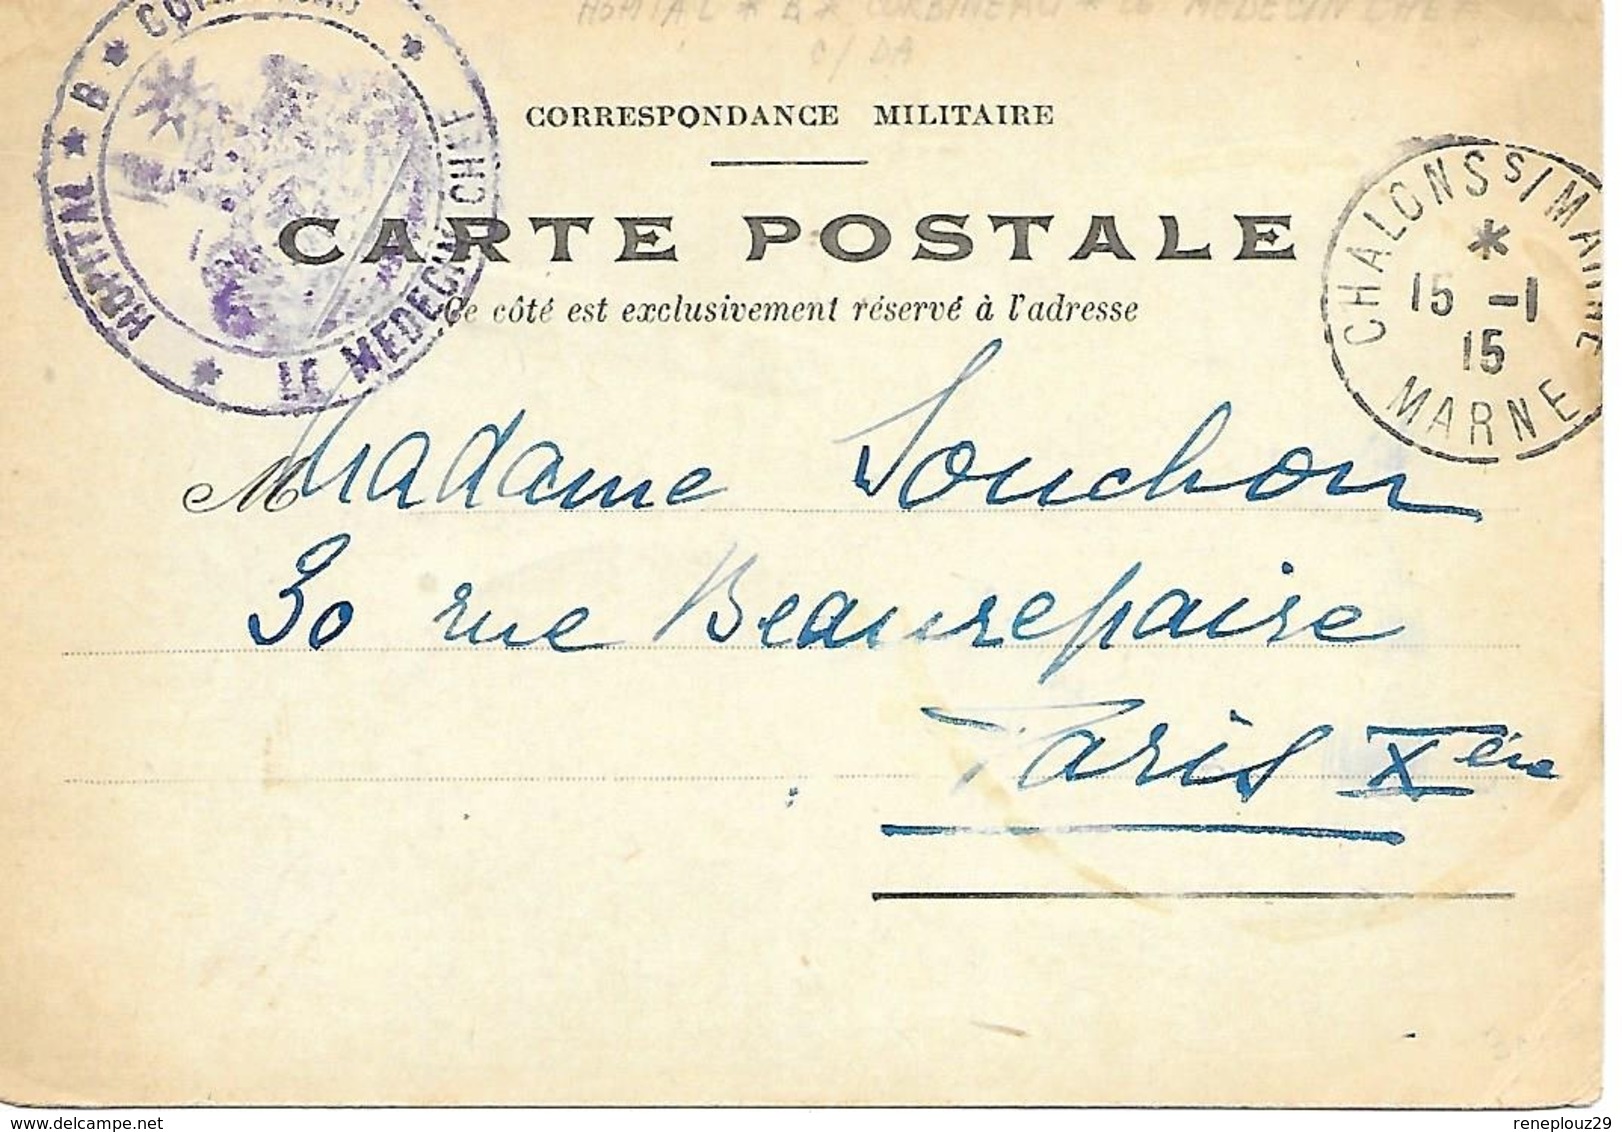 HOPITAL * B * CORBINEAU * LE MEDECIN CHEF
C/ DA
HOPITAL * B * CORBINEAU * LE MEDECIN CHEF *
CORRESPONDANCE MILITAIRE
CARTE POSTALE
Ce côté est exclusivement réservé à l'adresse
CHALONS S/MARNE
*
15 -1
15
MARNE
Madame Souchon
30 rue Beaurepaire
Paris Xème
reneplouz29